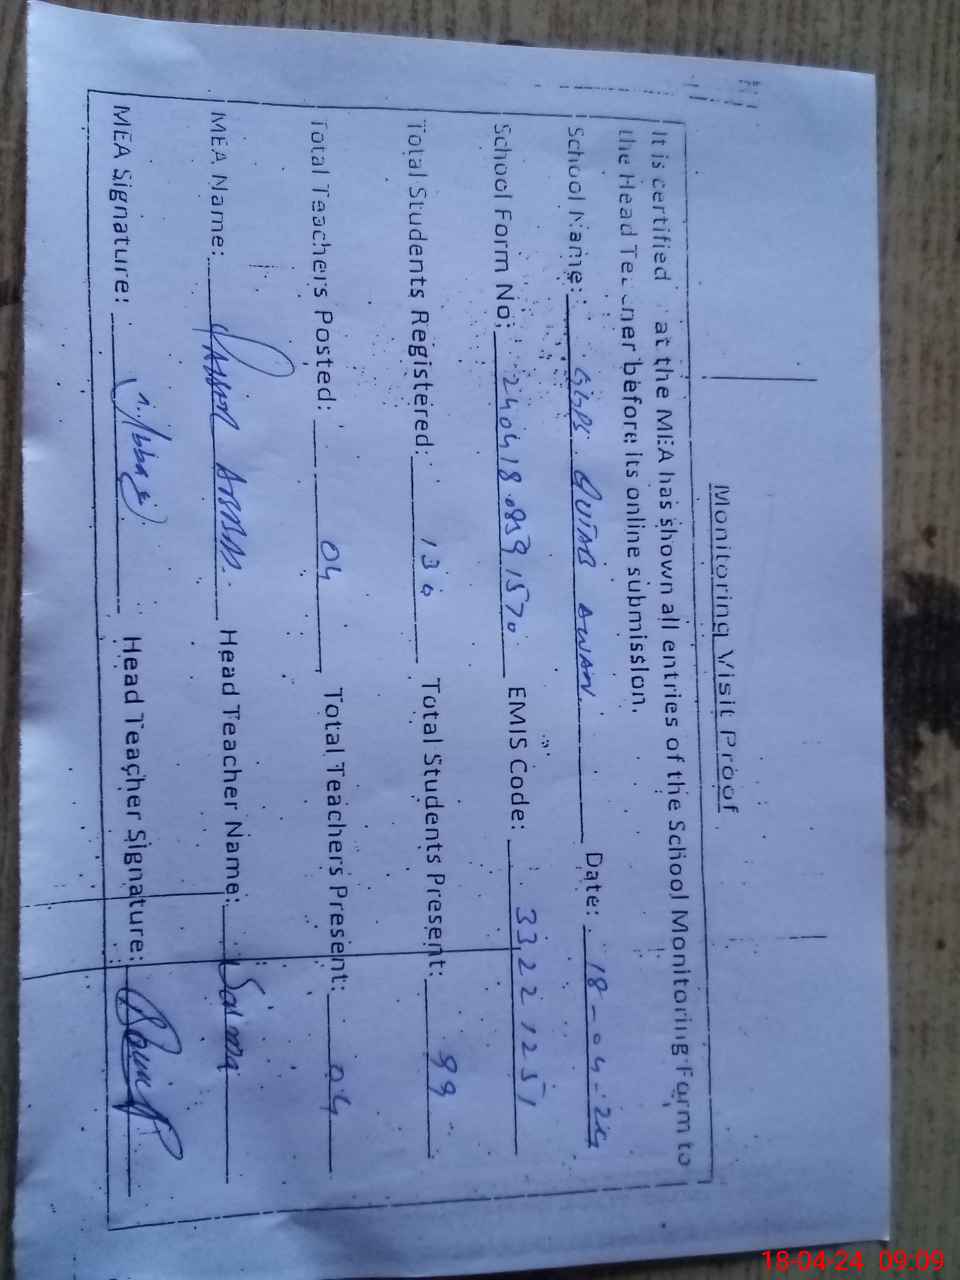 Monitoring Visit Proof
It is certified at the MEA has shown all entries of the School Monitoring Form to
the Head Te ner before its online submission.
School Name: GGPS QUTAB AWAN Date: 18-04-24
School Form No: 240418.0859 1570 EMIS Code: 33221251
Total Students Registered: 130 Total Students Present: 99
Total Teachers Posted: 04 Total Teachers Present: 04
MEA Name: ABBAS. Head Teacher Name: Saima
MEA Signature: Head Teacher Signature:
18-04-24 09:09